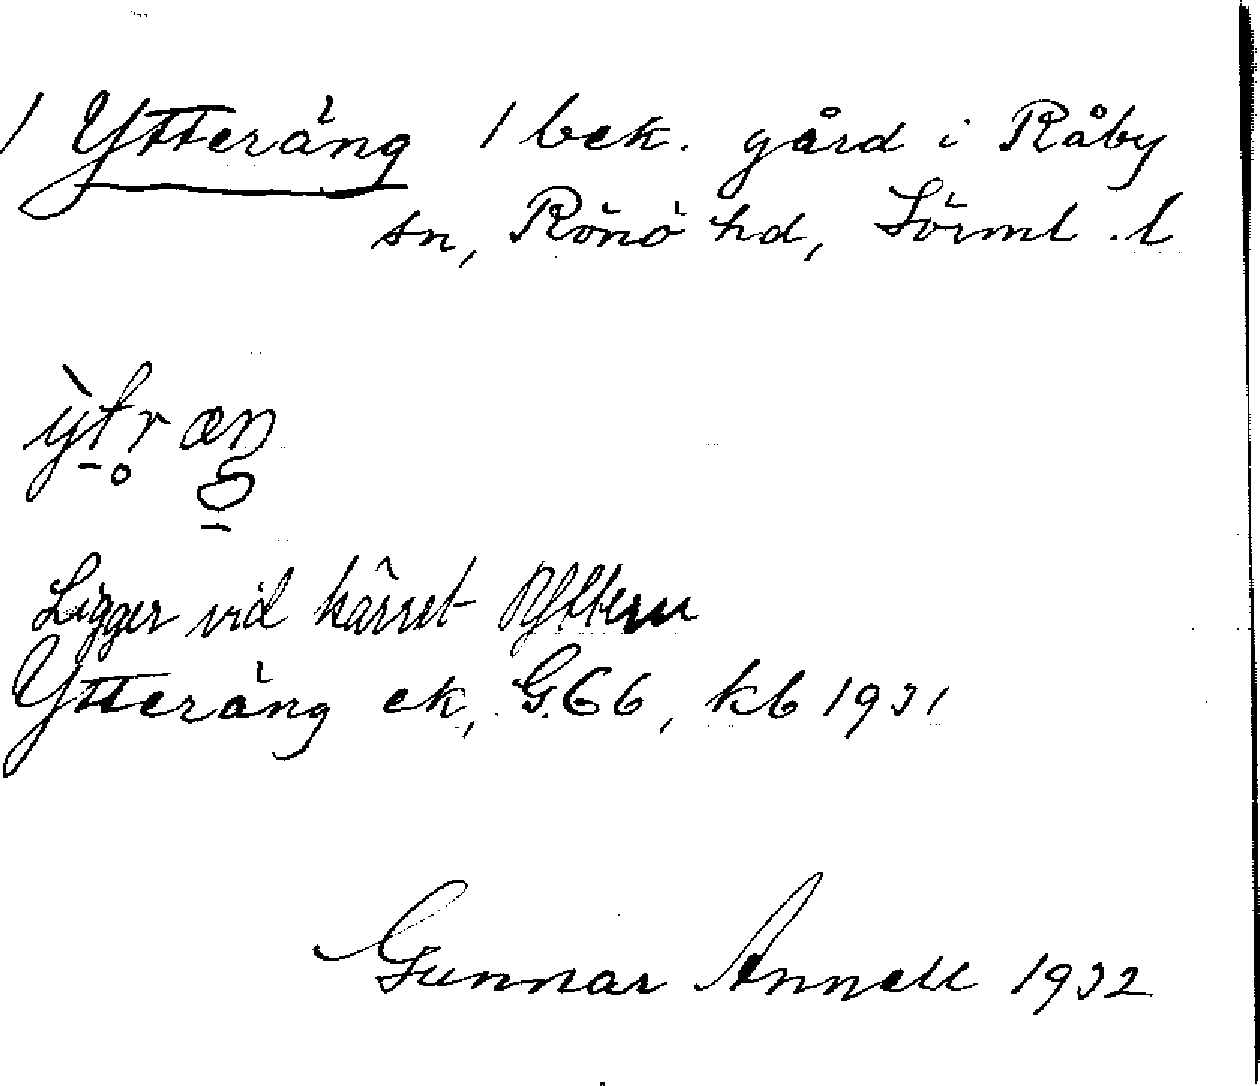 1 Ytteräng 1 bek. gård i Råby
sn, Rönö hd, Sörml. l
ỳtr æŋ
Ligger vid kärret Yttern
Ytteräng ek, G.66, kb 1931
Gunnar Annell 1932